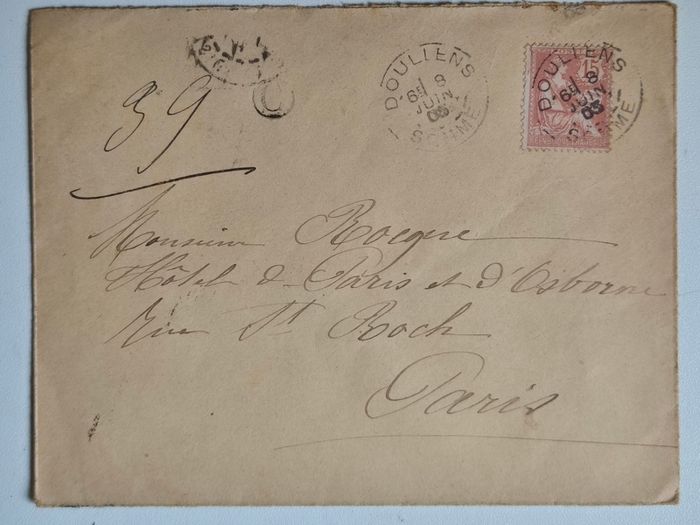 DOULLENS
6E 8
JUIN
03
SOMME
15
DOULLENS
6E 8
JUIN
03
SOMME
39
Monsieur Rocque
Hôtel de Paris et d'Osborne
Rue St Roch
Paris